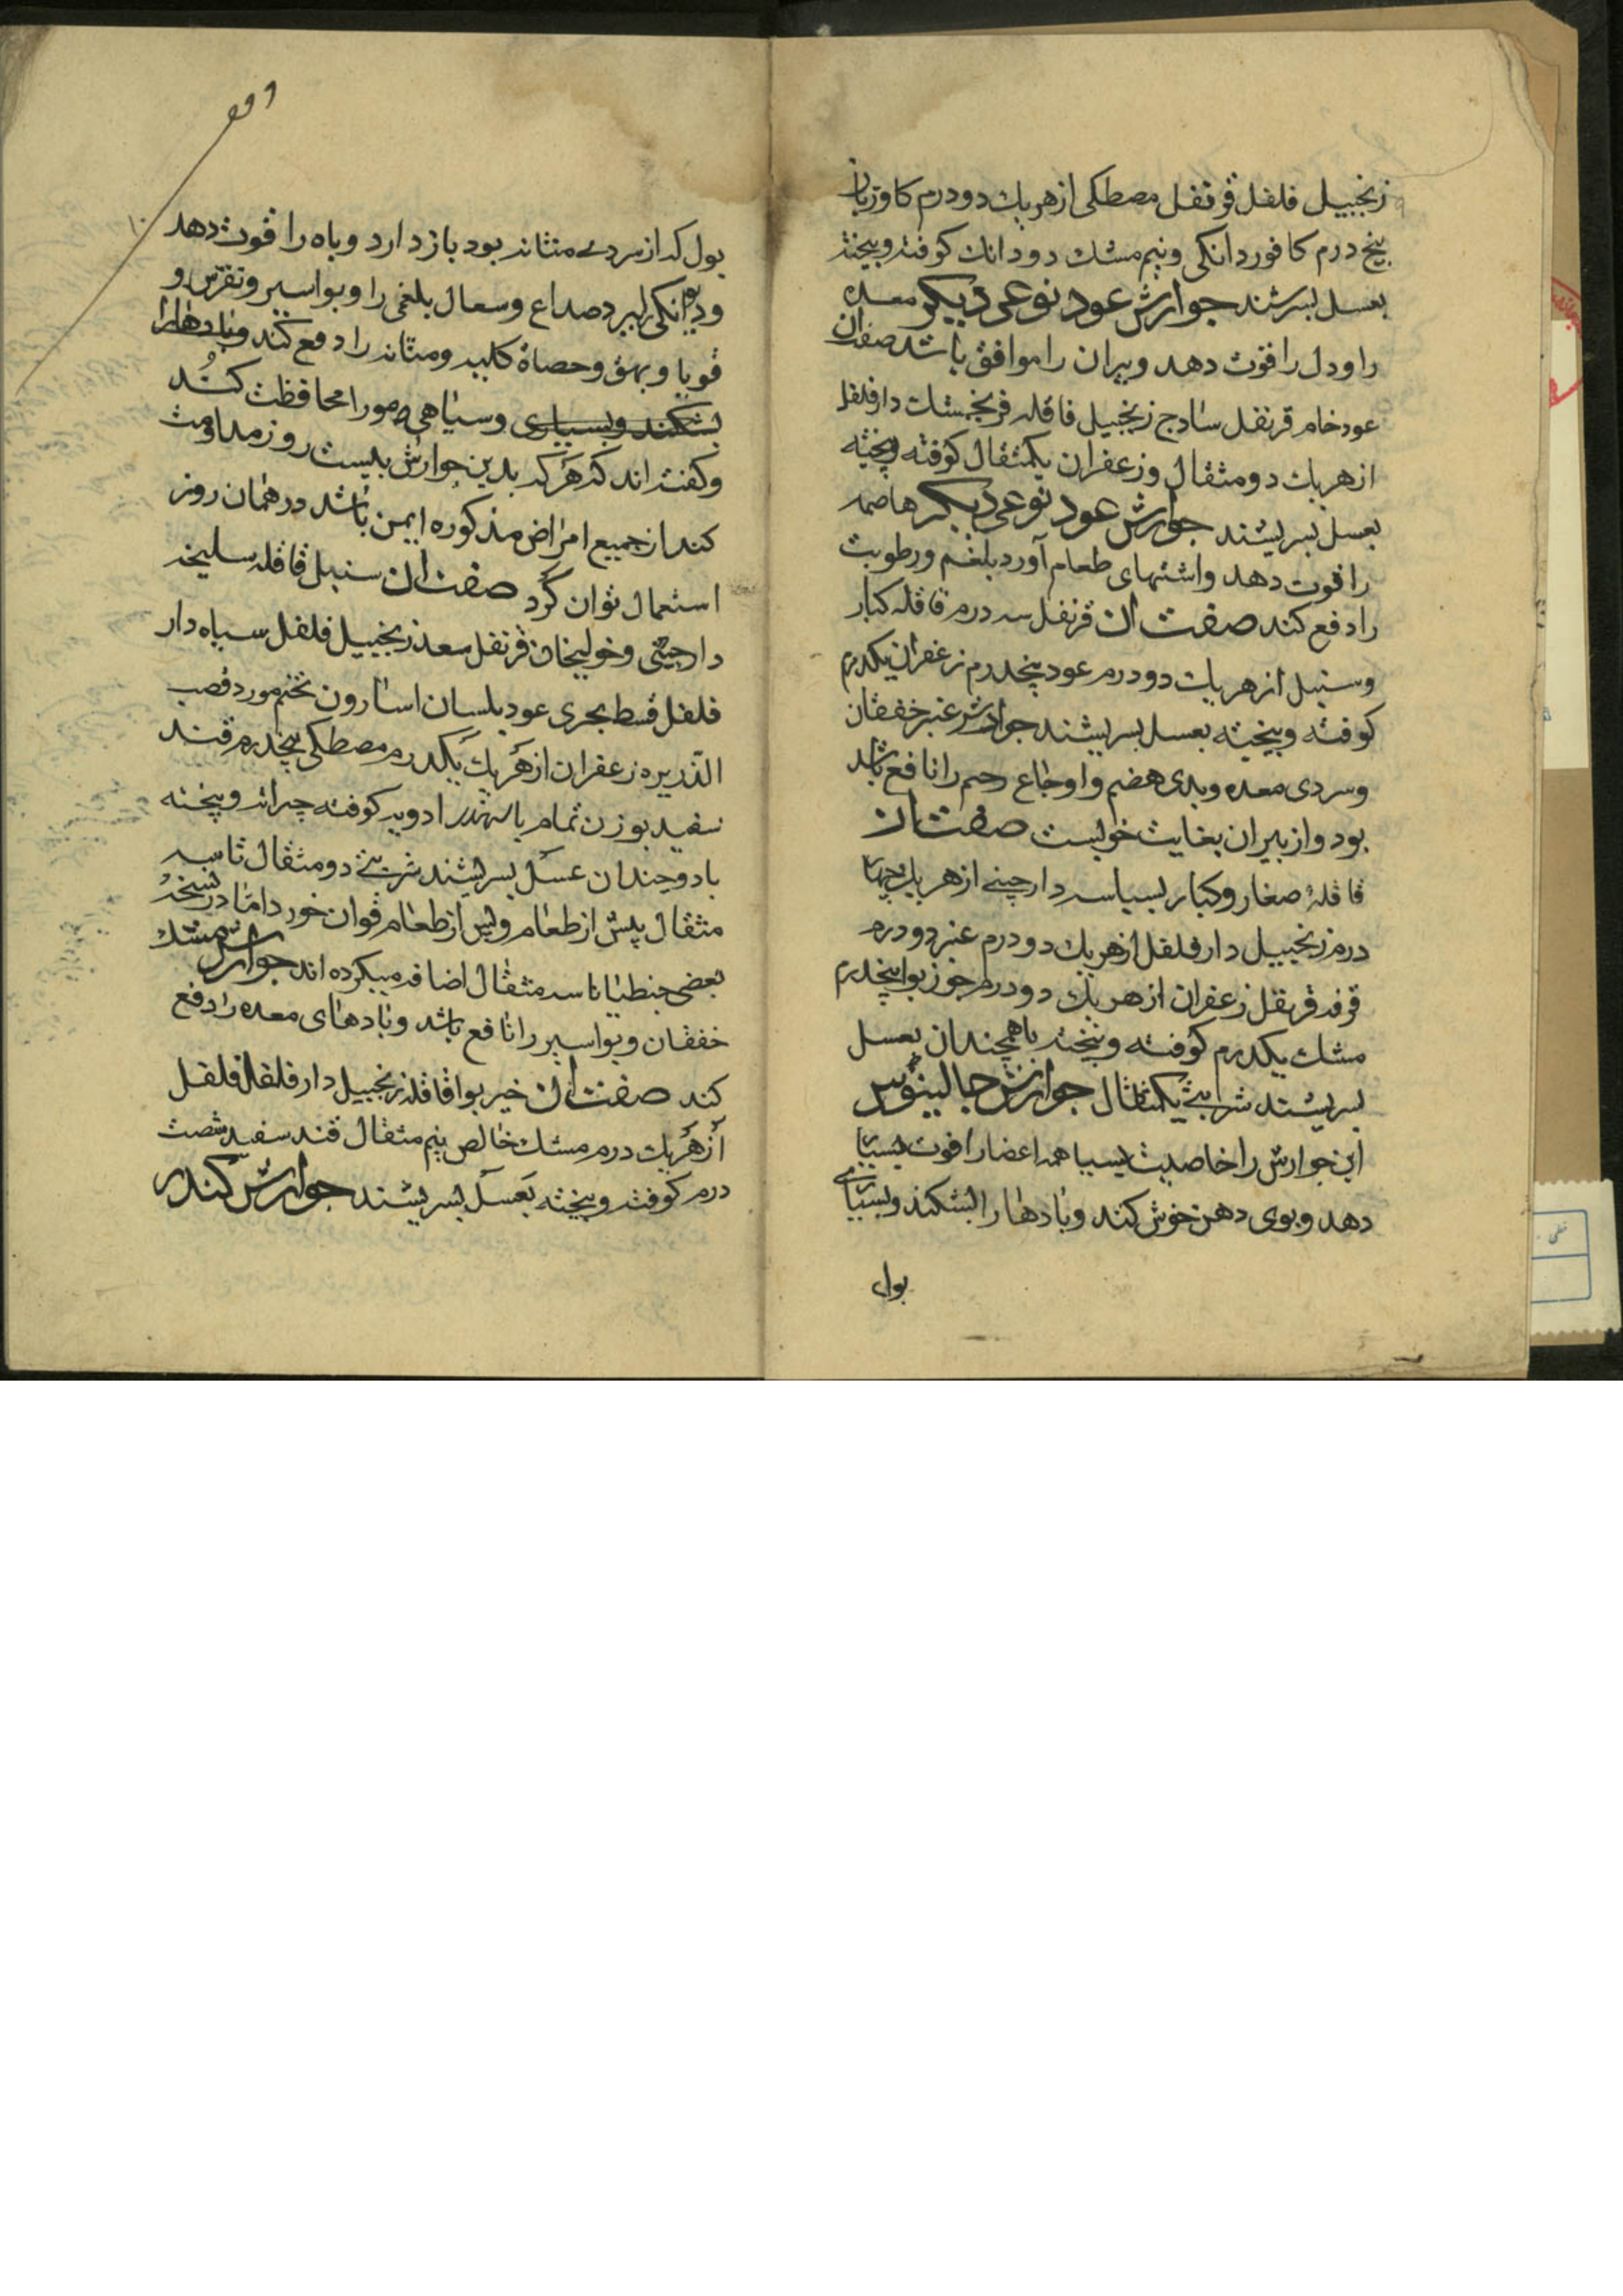 زنجبیل فلفل قرنفل مصطکی از هر یك دو درم کاوزبان
پنج درم کافور دانکی و نیم مشك دو دانك کوفته و بیخته
بعسل بسرشند جوارش عود نوعی دیکر معده
را و دل را قوت دهد و پیران را موافق باشد صفت آن
عود خام قرنفل سادج زنجبیل قاقله فرنجمشك دارفلفل
از هر یك دو مثقال و زعفران یکمثقال کوفته و بیخته
بعسل بسریشند جوارش عود نوعی دیکر هاضمه
را قوت دهد و اشتهای طعام آورد بلغم و رطوبت
را دفع کند صفت آن قرنفل سه درم قاقله کبار
و سنبل از هر یك دو درم عود پنجدرم زعفران یکدرم
کوفته و بیخته بعسل بسریشند جوارش عنبر خفقان
و سردی معده و بدی هضم و اوجاع رحم را نافع باشد
بود و از پیران بغایت خوبست صفت آن
قاقلهٔ صغار و کبار بسباسه دارچینی از هر یك چهار
درم زنجبیل دارفلفل از هر یك دو درم عنبر دو درم
قرفه قرنفل زعفران از هر یك دو درم جوز بوا پنجدرم
مشك یکدرم کوفته و بیخته با همچندان بعسل
بسریشند شربتی یکمثقال جوارش جالینوس
این جوارش را خاصیت بسیا همه اعضا را قوت بسیار
دهد و بوی دهن خوش کند و بادها را بشکند و بسیاری
بول
۱۰
بول که از سردی مثانه بود باز دارد و باه را قوت دهد
و دیوانکی را ببرد صداع و سعال بلغمی را و بواسیر و نقرس و
قوبا و بهق و حصاة کلیه و مثانه را دفع کند و بادها را
بشکند و بسیاری و سیاهی مو را محافظت کند
و کفته اند که هر که بدین جوارش بیست روز مداومت
کند از جمیع امراض مذکوره ایمن باشد در همان روز
استعمال توان کرد صفت آن سنبل قاقله سلیخه
دارچینی و خولنجان قرنفل سعد زنجبیل فلفل سیاه دار
فلفل قسط بحری عود بلسان اسارون تخم مورد قصب
الذریره زعفران از هر یك یکدرم مصطکی پنجدرم قند
سفید بوزن تمام ادویه کوفته و بیخته
با دو چندان عسل بسریشند شربتی دو مثقال تا سه
مثقال پیش از طعام و پس از طعام توان خورد اما در نسخهٔ
بعضی جنطیانا سه مثقال اضافه میکرده اند جوارش مشك
خفقان و بواسیر را نافع باشد و بادهای معده را دفع
کند صفت آن خیر بوا قاقله زنجبیل دارفلفل فلفل
از هر یك درم مشك خالص نیم مثقال قند سفید شصت
درم کوفته و بیخته بعسل بسریشند جوارش کندر